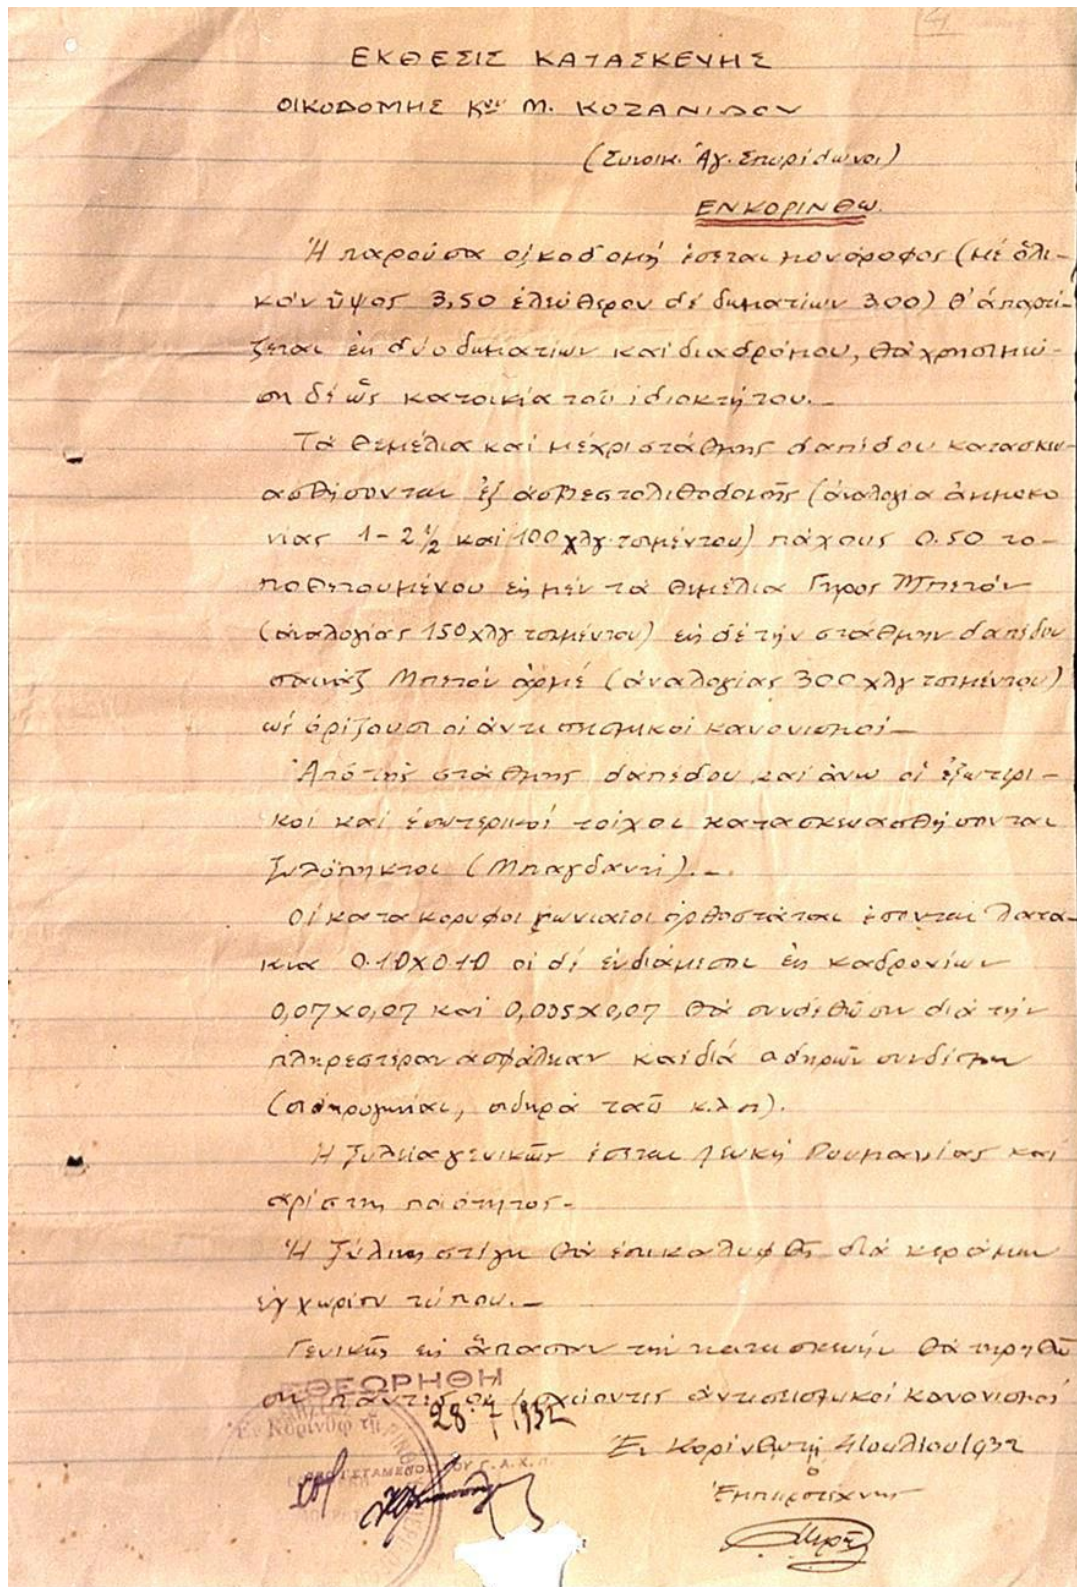 4
ΕΚΘΕΣΙΣ ΚΑΤΑΣΚΕΥΗΣ
ΟΙΚΟΔΟΜΗΣ Κου Μ. ΚΟΖΑΝΙΔΟΥ
(Συνοικ. Ἁγ. Σπυρίδωνος)
ΕΝ ΚΟΡΙΝΘΩ.
Ἡ παροῦσα οἰκοδομή ἔσεται μονόροφος (μέ ὁλι-
κόν ὕψος 3,50 ἐλεύθερον δέ δωματίων 3,00) θ' ἀπαρτί-
ζεται ἐκ δύο δωματίων καί διαδρόμου, θά χρησιμεύ-
ση δέ ὡς κατοικία τοῦ ἰδιοκτήτου.-
Τά θεμέλια καί μέχρι στάθμης δαπέδου κατασκευ-
ασθήσονται ἐξ ἀσβεστολιθοδομῆς (ἀναλογία ἀμμοκο
νίας 1-2½ καί 100 χλγ. τσιμέντου) πάχους 0.50 το-
ποθετουμένου εἰς μέν τά θεμέλια Γκρος Μπετόν
(ἀναλογίας 150 χλγ τσιμέντου) εἰς δέ τήν στάθμην δαπέδου
σαινάζ Μπετόν ἀρμέ (ἀναλογίας 300 χλγ τσιμέντου)
ὡς ὁρίζουσι οἱ ἀντισεισμικοί κανονισμοί-
Ἀπό τῆς στάθμης δαπέδου καί ἄνω οἱ ἐξωτερι-
κοί καί ἐσωτερικοί τοῖχοι κατασκευασθήσονται
ξυλόπηκτοι (Μπαγδαντί).-
Οἱ κατακόρυφοι γωνιαῖοι ὀρθοστάται ἔσονται λατά-
κια 0.10Χ0.10 οἱ δέ ἐνδιάμεσοι ἐκ καδρονίων
0,07Χ0,07 καί 0,005Χ0,07 θά συνδεθῶσιν διά τήν
πληρεστέραν ἀσφάλειαν καί διά σιδηρῶν συνδέσμων
(σιδηρογωνίαι, σιδηρά ταῦ κ.λ.π).
Ἡ ξυλεία γενικῶς ἔσεται λευκή Ρουμανίας καί
ἀρίστης ποιότητος-
Ἡ ξύλινη στέγη θά ἐπικαλυφθῆ διά κεράμων
ἐγχωρίου τύπου.-
Γενικῶς εἰς ἅπασαν τήν κατασκευήν θά τηρηθῶ
σιν πάντες οἱ ἰσχύοντες ἀντισεισμικοί κανονισμοί
ΕΘΕΩΡΗΘΗ
Ἐν Κορίνθῳ τῇ 28-7-1932
Ἐν Κορίνθῳ τῇ 4 Ἰουλίου 1932
Ὁ
Ἐμπειροτέχνης